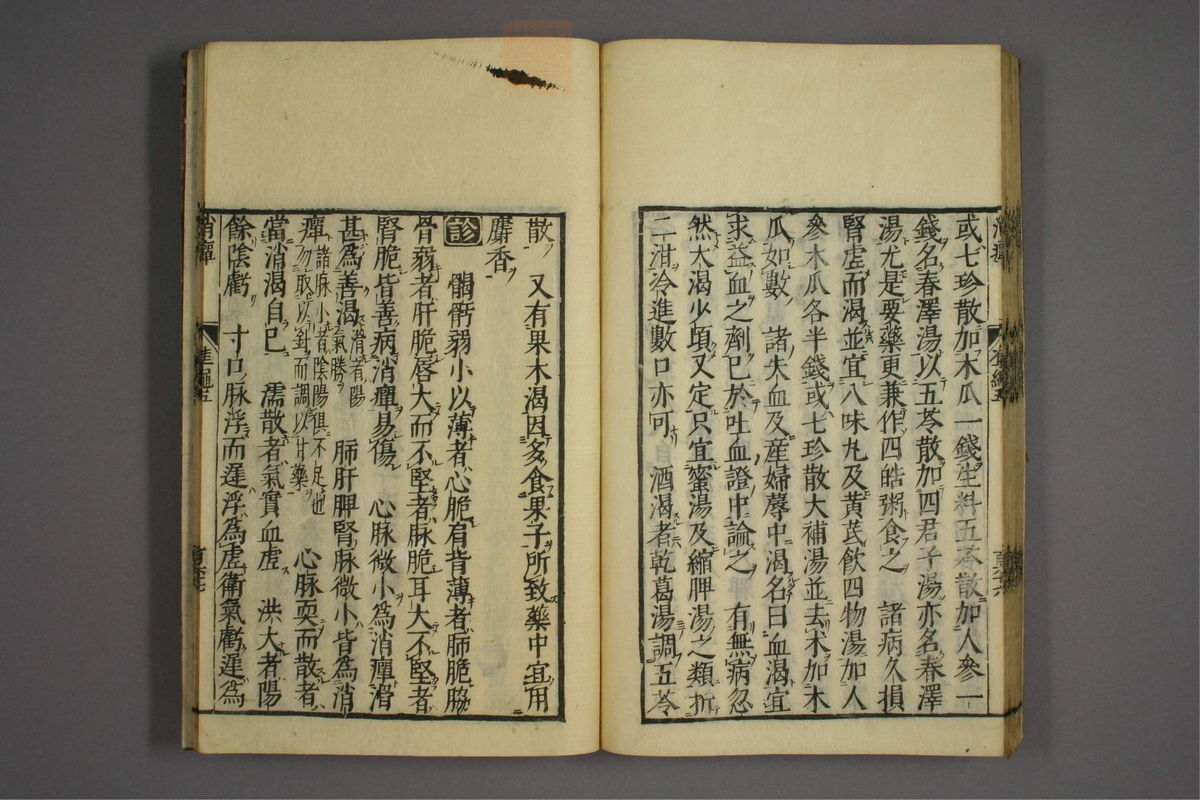 或七珍散加木瓜一錢生料五苓散加人參一
錢名春澤湯以五苓散加四君子湯亦名春澤
湯尤是要藥更兼作四皓粥食之　諸病久損
腎虛而渴並宜八味丸及黃芪飲四物湯加人
參木瓜各半錢或七珍散大補湯並去朮加木
瓜如數　諸失血及産婦蓐中渴名曰血渴宜
求益血之劑已於吐血證中論之　有無病忽
然大渴少頃又定只宜蜜湯及縮脾湯之類折
二泔冷進數口亦可　酒渴者乾葛湯調五苓
散　又有果木渴因多食果子所致藥中宜用
麝香
診　𩩲骬弱小以薄者心脆肩背薄者肺脆脇
骨弱者肝脆唇大而不堅者脾脆耳大不堅者
腎脆皆善病消癉易傷　心脉微小爲消癉滑
甚爲善渴滑者陽氣勝　肺肝脾腎脉微小皆爲消
癉諸脉小者陰陽俱不足也勿取以針而調以甘藥　心脉耎而散者
當消渴自已　濡散者氣實血虛　洪大者陽
餘陰虧　寸口脉浮而遲浮爲虛衛氣虧遲爲
消癉
準繩五
百六十七